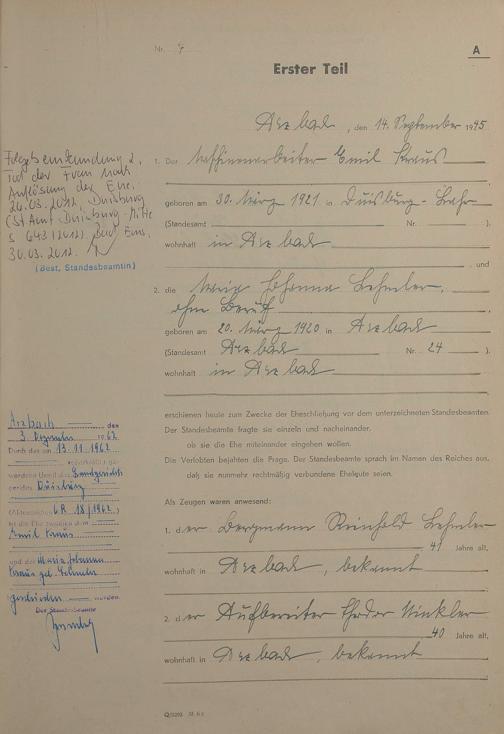 Nr. 7
A
Erster Teil
Arzbach, den 14. September 1945
1. Der Raffineriearbeiter Emil Kraus
geboren am 30. März 1921 in Duisburg-
(Standesamt Nr. ).
wohnhaft in Arzbach
und
2. die Maria Johanna Lehmler,
ohne Beruf
geboren am 20. März 1920 in Arzbach
(Standesamt Arzbach Nr. 24 ).
wohnhaft in Arzbach
erschienen heute zum Zwecke der Eheschließung vor dem unterzeichneten Standesbeamten.
Der Standesbeamte fragte sie einzeln und nacheinander,
ob sie die Ehe miteinander eingehen wollen.
Die Verlobten bejahten die Frage. Der Standesbeamte sprach im Namen des Reiches aus,
daß sie nunmehr rechtmäßig verbundene Eheleute seien.
Als Zeugen waren anwesend:
1. der Bergmann Reinhold Lehmler
41 Jahre alt,
wohnhaft in Arzbach, bekannt
2. der Aufbereiter Theodor Winkler
40 Jahre alt,
wohnhaft in Arzbach, bekannt
Folgebeurkundung 2,
Tod der Frau nach
Auflösung der Ehe.
26.03.2012, Duisburg
(St.Amt Duisburg-Mitte
S 643/2012) Bad Ems,
30.03.2012.
(Best, Standesbeamtin)
Arzbach den
3. Dezember 1962
Durch das am 13.11.1962
rechtskräftig ge-
wordene Urteil des Landgerichts
Duisburg
(Aktenzeichen 6 R 18/1962.)
ist die Ehe zwischen dem
Emil Kraus
und der Maria Johanna
Kraus geb. Lehmler
geschieden worden.
Der Standesbeamte